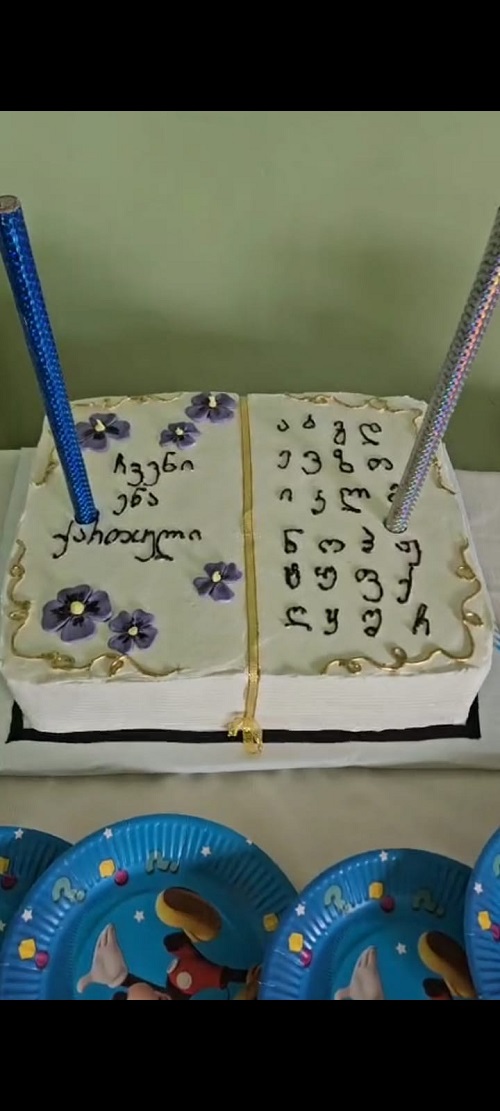 ჩვენი
ენა
ქართული
ა ბ გ დ
ე ვ ზ თ
ი კ ლ
ნ ო პ ჟ
ტ უ ფ ქ
ღ ყ შ ჩ